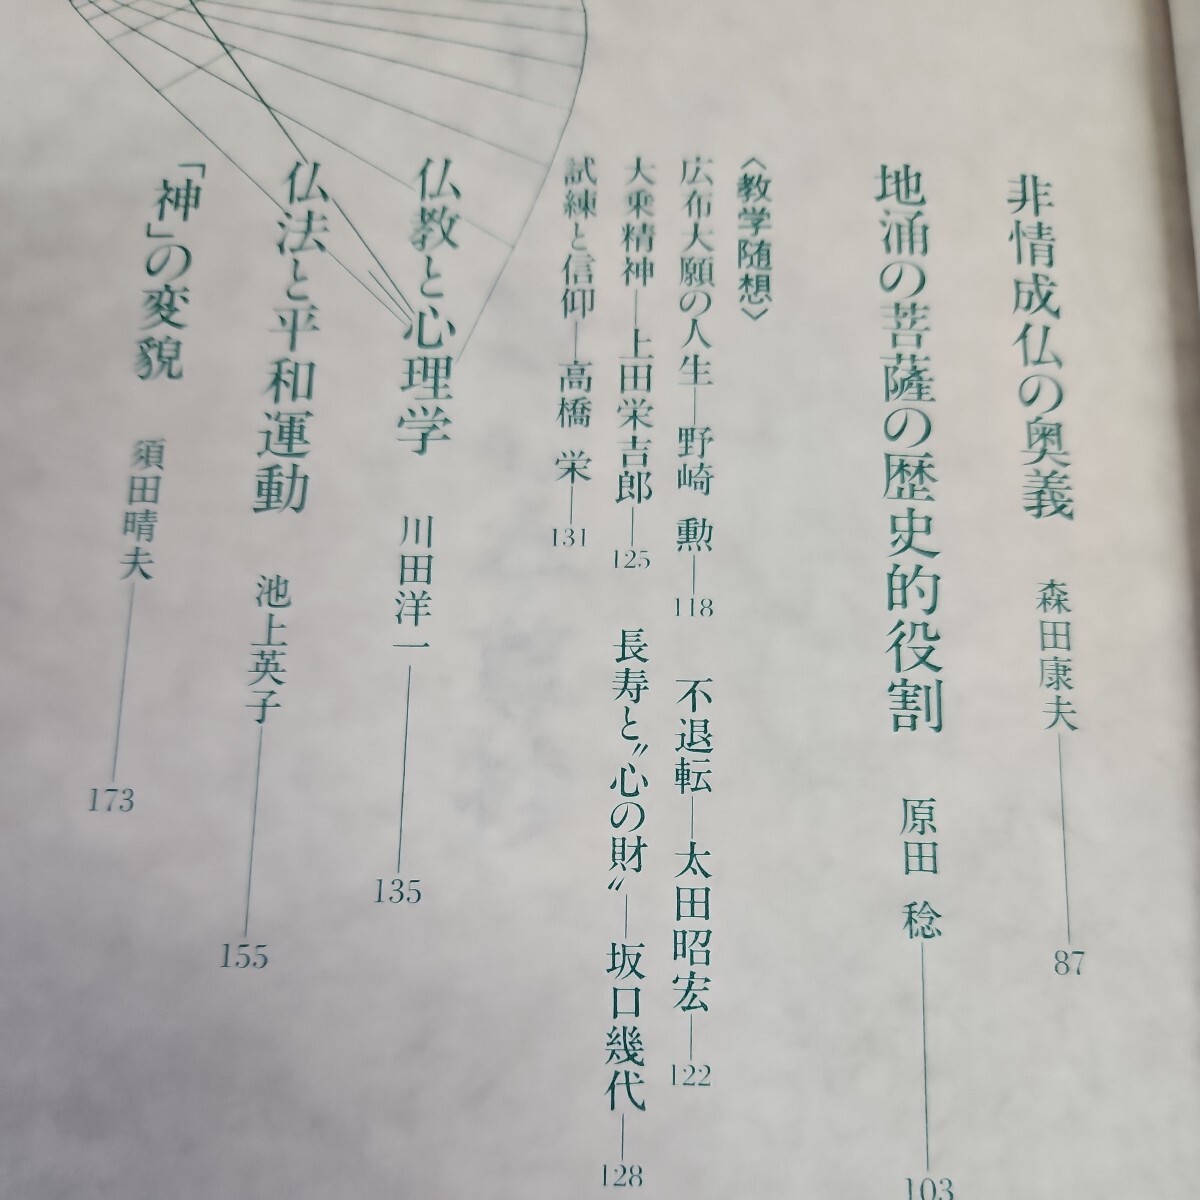 非情成仏の奥義 森田康夫 87
地涌の菩薩の歴史的役割 原田 稔 103
〈教学随想〉
広布大願の人生―野崎 勲―118 不退転―太田昭宏―122
大乗精神―上田栄吉郎―125 長寿と〝心の財〟―坂口幾代―128
試練と信仰―高橋 栄―131
仏教と心理学 川田洋一 135
仏法と平和運動 池上英子 155
「神」の変貌 須田晴夫 173